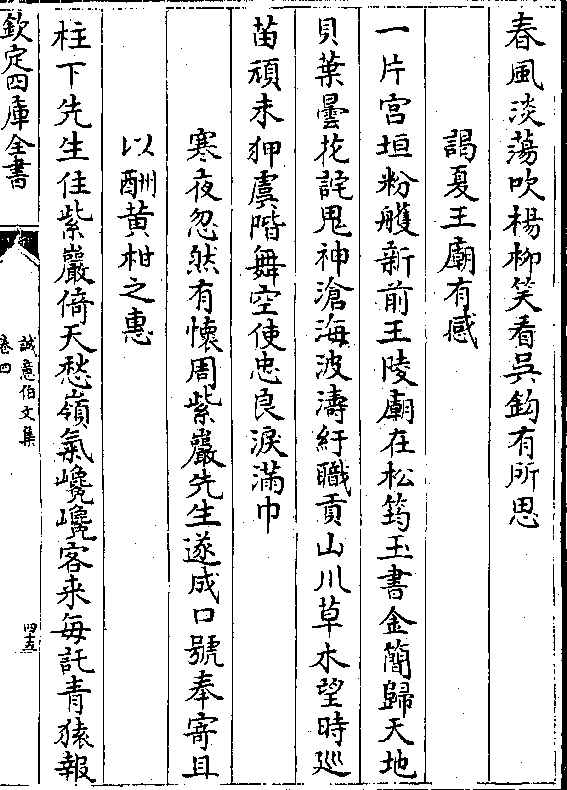 春風淡蕩吹楊柳笑看吳鉤有所思
謁夏王廟有感
一片宮垣粉艧新前王陵廟在松筠玉書金簡歸天地
貝葉曇花詫鬼神滄海波濤紆職貢山川草木望時廵
苗頑未狎虞階舞空使忠良淚滿巾
寒夜忽然有懷周紫巖先生遂成口號奉寄且
以酬黄柑之惠
柱下先生住紫巖倚天愁嶺氣巉巉客来每託青猿報
欽定四庫全書
誠意伯文集
卷四
四十五